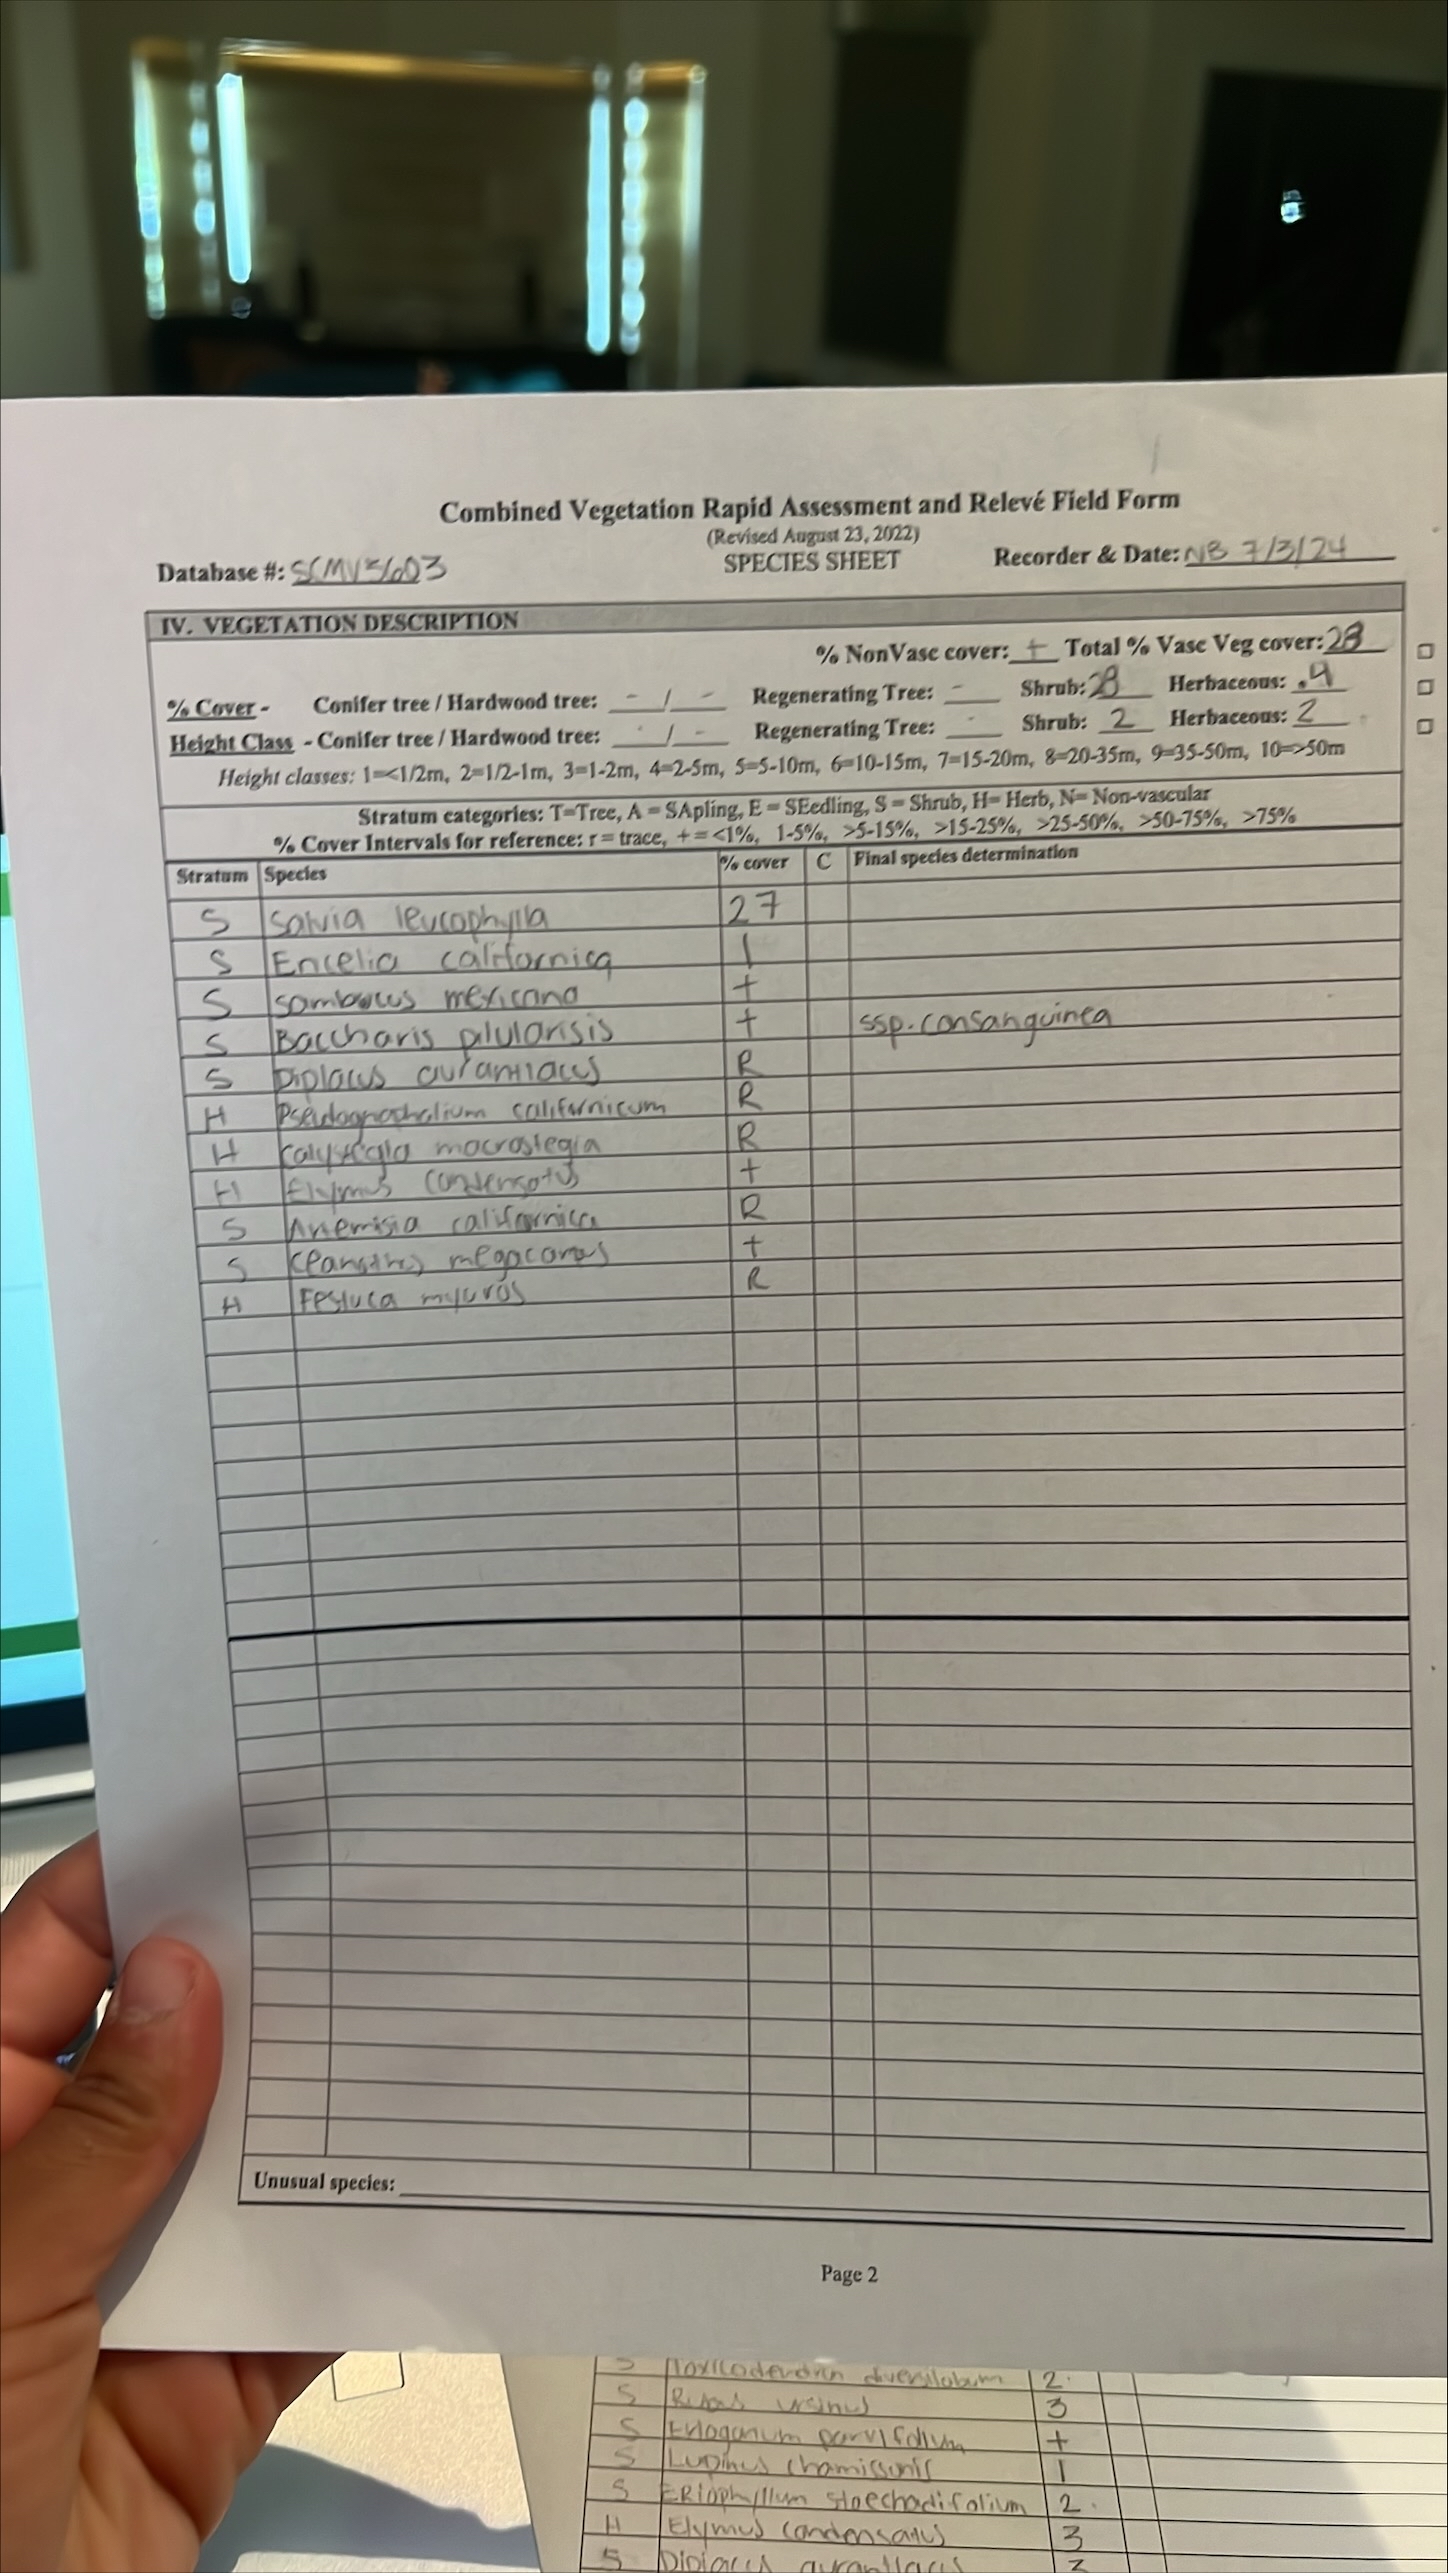 Combined Vegetation Rapid Assessment and Relevé Field Form
(Revised August 23, 2022)
Database #: SCMV3603 SPECIES SHEET Recorder & Date: NB 7/3/24
IV. VEGETATION DESCRIPTION
% NonVasc cover: + Total % Vasc Veg cover: 28
% Cover - Conifer tree / Hardwood tree: - / - Regenerating Tree: - Shrub: 28 Herbaceous: .4
Height Class - Conifer tree / Hardwood tree: - / - Regenerating Tree: - Shrub: 2 Herbaceous: 2
Height classes: 1=<1/2m, 2=1/2-1m, 3=1-2m, 4=2-5m, 5=5-10m, 6=10-15m, 7=15-20m, 8=20-35m, 9=35-50m, 10=>50m
Stratum categories: T=Tree, A = SApling, E = SEedling, S = Shrub, H= Herb, N= Non-vascular
% Cover Intervals for reference: r = trace, + = <1%, 1-5%, >5-15%, >15-25%, >25-50%, >50-75%, >75%
Stratum Species % cover C Final species determination
S Salvia leucophylla 27
S Encelia californica 1
S Sambucus mexicana +
S Baccharis pilularisis + ssp. consanguinea
S Diplacus aurantiacus R
H Pseudognaphalium californicum R
H Calystegia macrostegia R
H Elymus condensatus +
S Artemisia californica R
S Ceanothus megacarpus +
H Festuca myuros R
Unusual species:
Page 2
S Toxicodendron diversilobum 2
S Rubus ursinus 3
S Eriogonum parvifolium +
S Lupinus chamissonis 1
S Eriophyllum staechadifolium 2
H Elymus condensatus 3
S Diplacus aurantiacus